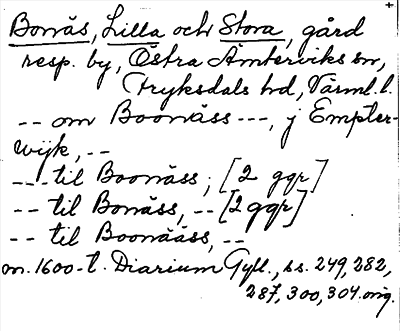 Bonäs, Lilla och Stora, gård
resp. by, Östra Ämterviks sn,
Fryksdals hd, Värml. l.
-- om Boonäss ---, j Empter-
wijk, --
--- til Boonäss; [2 ggr]
-- til Bonäss, -- [2 ggr]
-- til Boonääss, --
om. 1600-t. Diarium Gyll., ss. 249, 282,
287, 300, 304. orig.